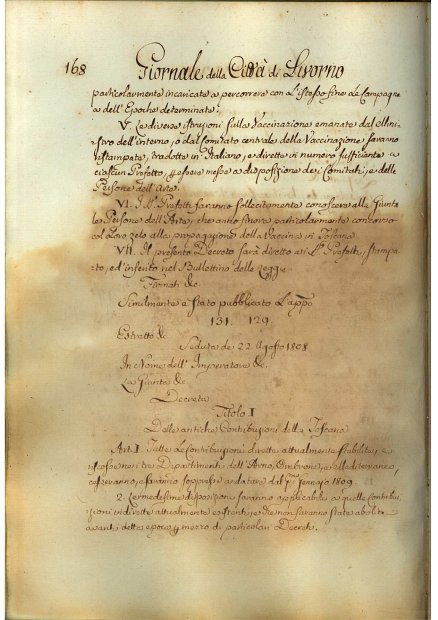 168 Giornale della Città di Livorno
particolarmente incaricate a percorrere con l'istesso fine le Campagne
a dell' Epoche determinate.
V. Le diverse istruzioni sulla Vaccinazione emanate dal Mini-
stro dell'interno, o dal Comitato centrale della Vaccinazione saranno
ristampate, tradotte in Italiano, e dirette in numero sufficiente a
ciascun Prefetto, esser messe a disposizione dei Comitati, e delle
Persone dell' Arte.
VI. I SS. Prefetti faranno sollecitamente conoscere alla Giunta
le Persone dell' Arte, che anno finora particolarmente concorso
col Loro zelo alla propagazione della Vaccina in Toscana.
VII. Il presente Decreto sarà diretto ai SS. Prefetti, stampa-
to, ed inserito nel Bullettino delle Leggi.
Firmati &c
Similmente è stato pubblicato l'app.º
131. 129.
Estratto &c
Seduta de 22. Agosto 1808
In Nome dell' Imperatore &c.
La Giunta &c
Decreta
Titolo I
Delle antiche Contribuzioni della Toscana
Art. I. Tutte le contribuzioni dirette attualmente stabilite, e
riscosse nei tre Dipartimenti dell' Arno, Ombrone, e Mediterraneo,
cesseranno, e saranno soppresse a datare dal P.º Gennajo 1809.
2. Le medesime disposizioni saranno applicabili a quelle contribu-
zioni indirette attualmente esistenti, che non saranno state abolite
avanti detta epoca p mezzo di particolari Decreti.